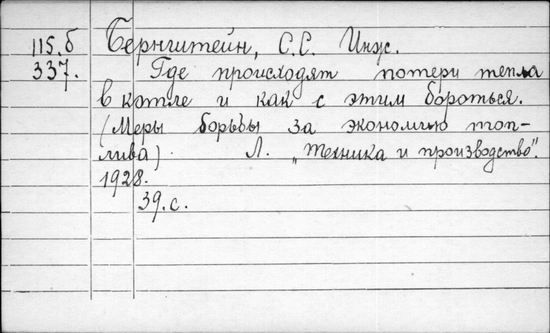 115.б Бернштейн, С.С. Инж.
337. Где происходят потери тепла
в котле и как с этим бороться.
(Меры борьбы за экономию топ-
лива). Л. „Техника и производство".
1928.
39.с.